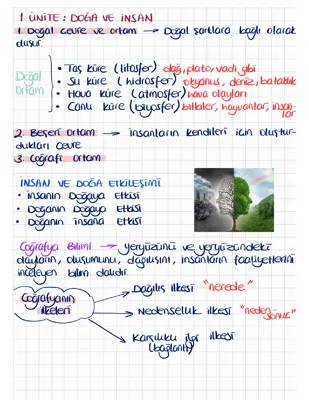 1. ÜNİTE : DOĞA VE İNSAN
1. Doğal çevre ve ortam → Doğal şartlara bağlı olarak
oluşur.
Doğal
Ortam
• Taş küre (litosfer) dağ, plato, vadi gibi
• Su küre (hidrosfer) okyanus, deniz, bataklık
• Hava küre (atmosfer) hava olayları
• Canlı küre (biyosfer) bitkiler, hayvanlar, insan-
lar
2. Beşeri Ortam → insanların kendileri için oluştur-
dukları çevre
3. Coğrafi Ortam
İNSAN VE DOĞA ETKİLEŞİMİ
• insanın Doğaya Etkisi
• Doğanın Doğaya Etkisi
• Doğanın insana Etkisi
Coğrafya Bilimi → yeryüzünü ve yeryüzündeki
olayların, oluşumunu, dağılışını, insanların faaliyetlerini
inceleyen bilim dalıdır.
Coğrafyanın
ilkeleri
→ Dağılış ilkesi "nerede"
→ Nedensellik ilkesi "neden-
sonuç"
→ Karşılıklı ilgi ilkesi
(bağlantı)